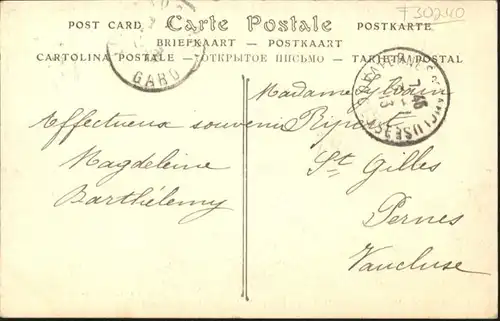 F30240
POST CARD Carte Postale POSTKARTE
BRIEFKAART — POSTKAART
CARTOLINA POSTALE — ОТКРЫТОЕ ПИСЬМО — TARJETA POSTAL
GARD
7 45
13
VAUCLUSE
Madame Sylvain
Ripert
St Gilles
Pernes
Vaucluse
Affectueux souvenir
Magdeleine
Barthélemy